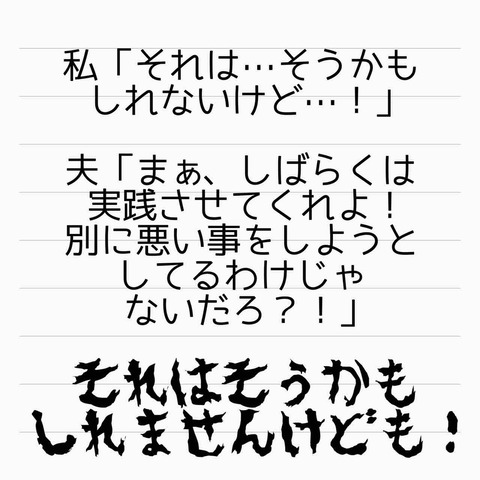 私「それは…そうかも
しれないけど…！」
夫「まぁ、しばらくは
実践させてくれよ！
別に悪い事をしようと
してるわけじゃ
ないだろ？！」
それはそうかも
しれませんけども！